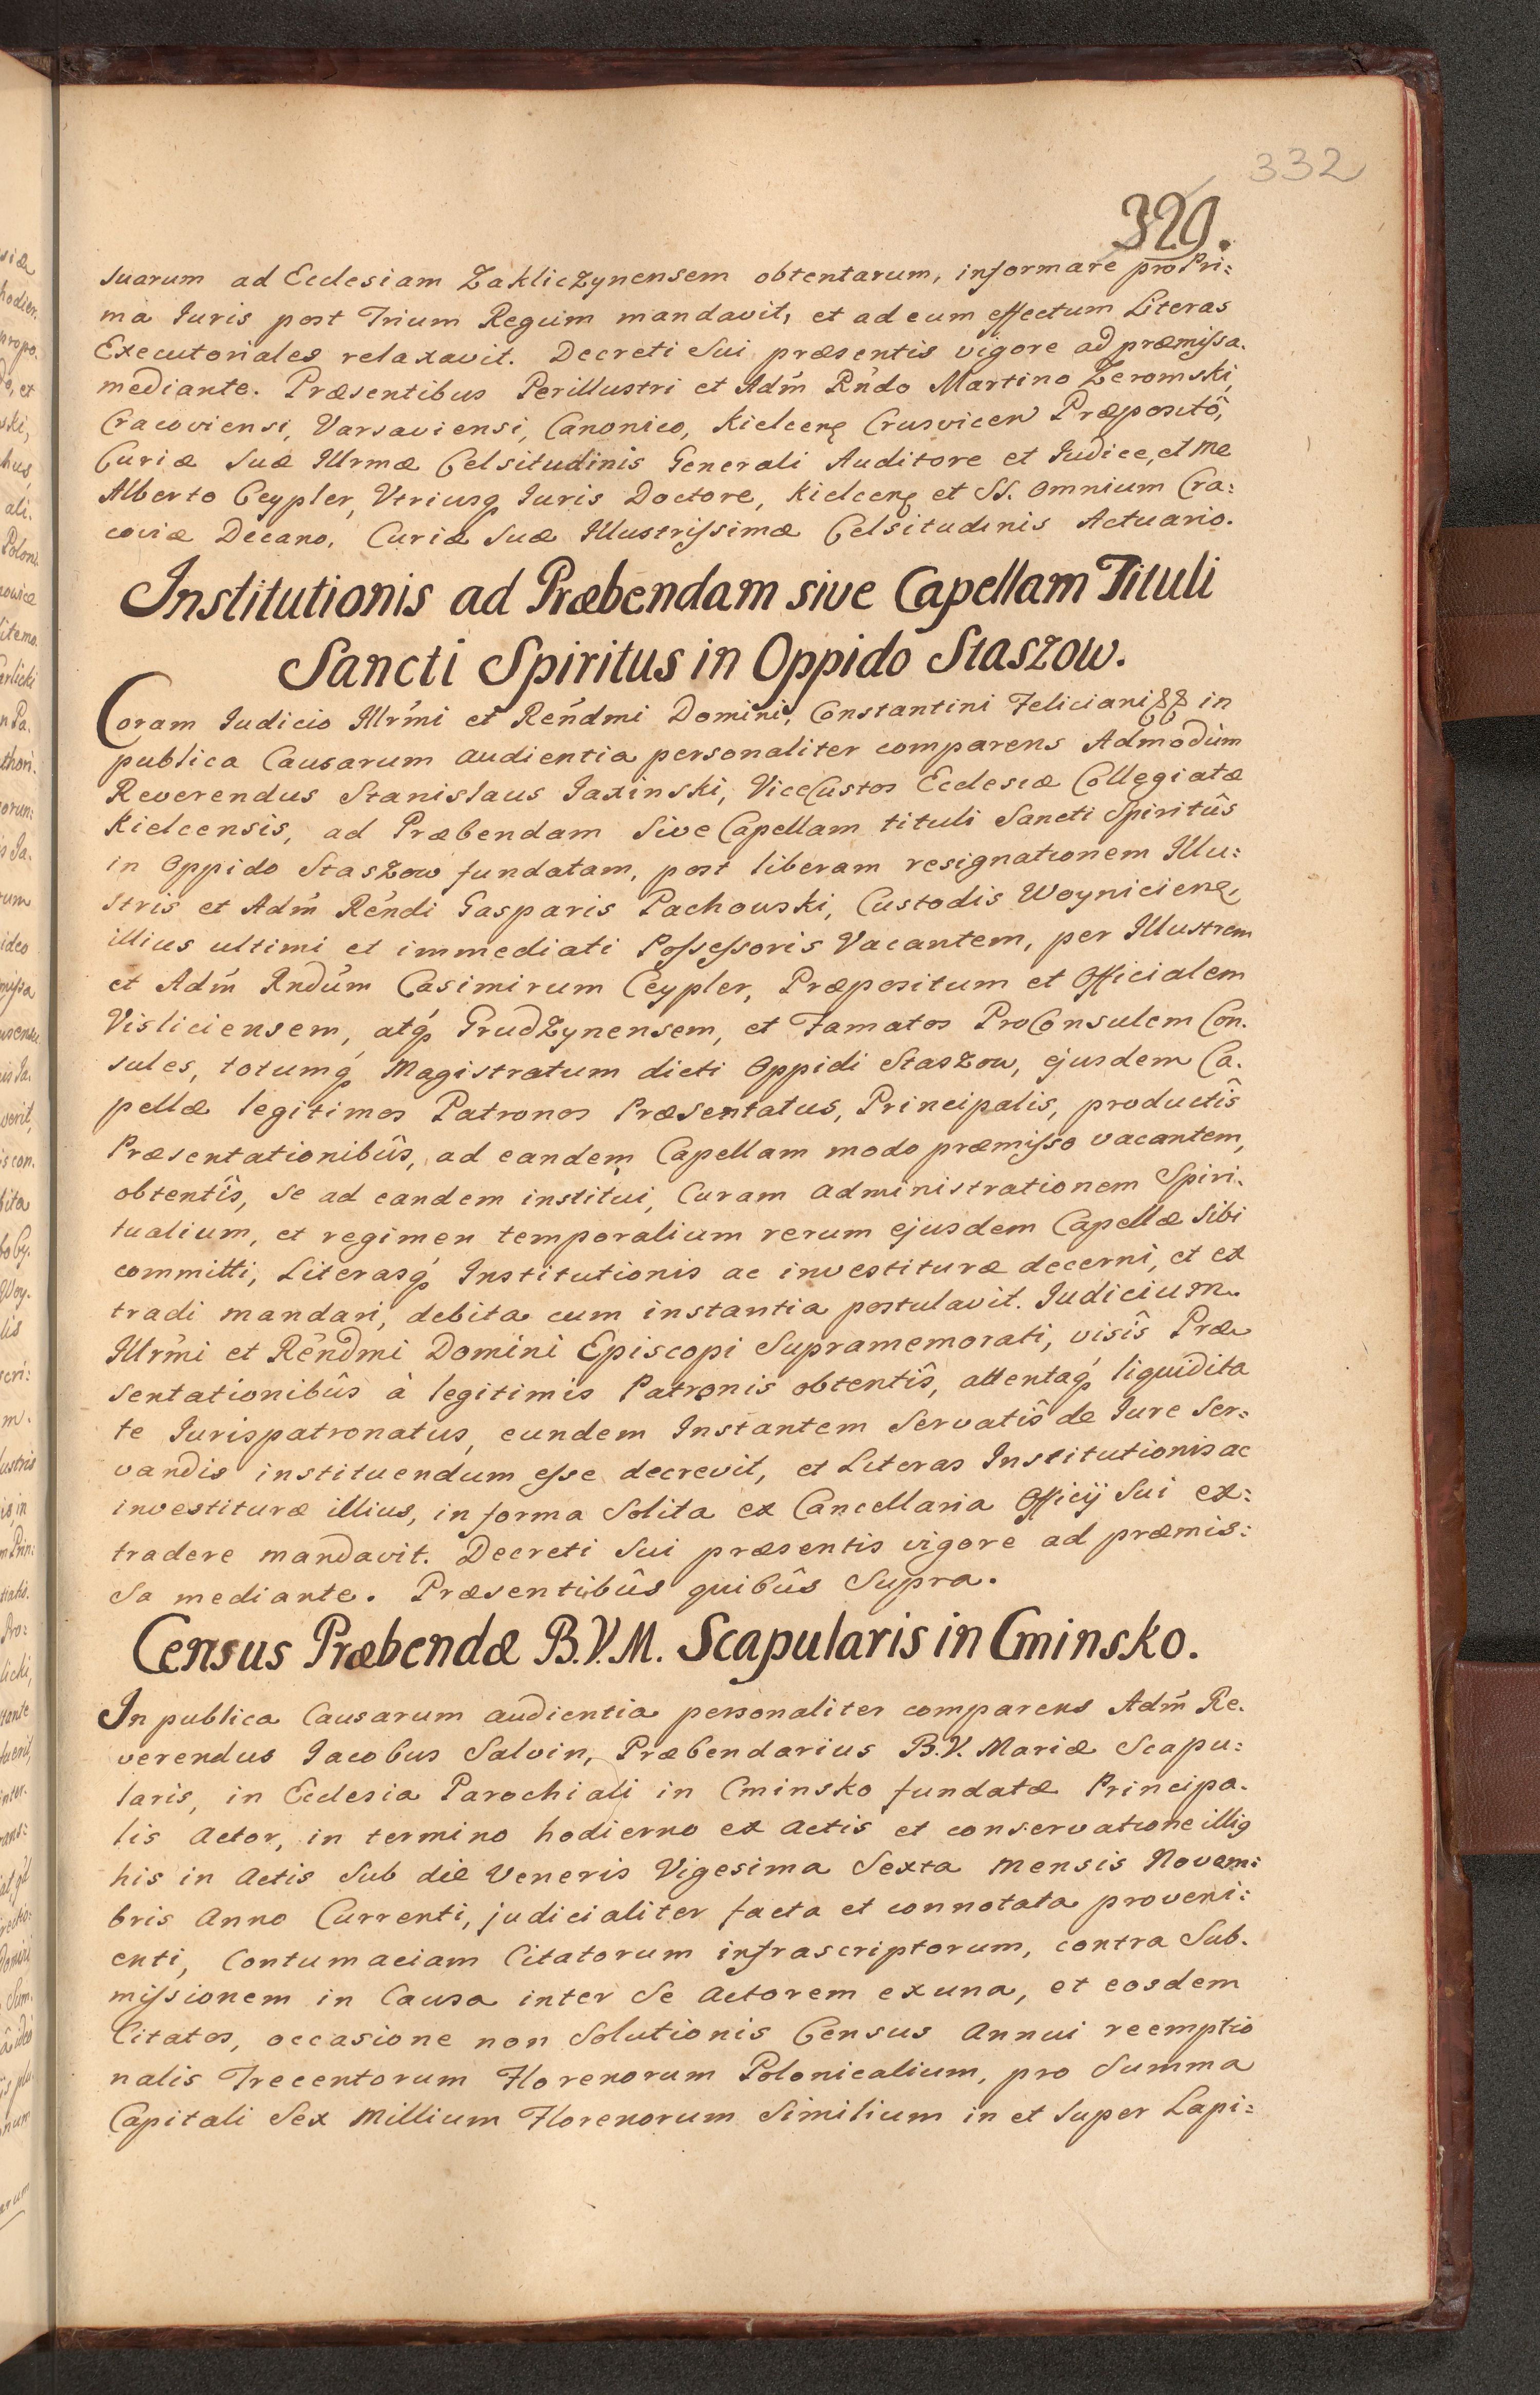 332
329.
suarum ad Ecclesiam Zakliczynensem obtentarum, informare pro Pri:
ma Iuris post Trium Regum mandavit, et ad eum effectum Literas
Executoriales relaxavit. Decreti sui præsentis vigore ad præmissa.
mediante. Præsentibus Perillustri et Adm̃ Rńdo Martino Zeromski,
Cracoviensi, Varsaviensi, Canonico, Kielcenȩ Crusvicen Præpositô,
Curiæ suæ Illrmæ Celsitudinis Generali Auditore et Iudice, et me
Alberto Ceypler, Vtriusq Iuris Doctore, Kielcenȩ et SS. Omnium Cra:
coviæ Decano, Curiæ suæ Illustrissimæ Celsitudinis Actuario.
Institutionis ad Præbendam sive Capellam Tituli
Sancti Spiritus in Oppido Staszow.
Coram Iudicio Illrm̃i et Reńdmi Domini, Constantini Feliciani && in
publica Causarum audientia personaliter comparens Admodùm
Reverendus Stanislaus Iaxinski, ViceCustos Ecclesiæ Collegiatæ
Kielcensis, ad Præbendam sive Capellam tituli Sancti Spiritûs
in Oppido Staszow fundatam, post liberam resignationem Illu:
stris et Adm̃ Reńdi Gasparis Pachowski, Custodis Woynicienȩ,
illius ultimi et immediati Possessoris Vacantem, per Illustrem
et Adm̃ Rndúm Casimirum Ceypler, Præpositum et Officialem
Visliciensem, atq́ Grudzynensem, et Famatos ProConsulem Con.
sules, totumq́ Magistratum dicti Oppidi Staszow, ejusdem Ca.
pellæ legitimos Patronos Præsentatus, Principalis, productîs
Præsentationibûs, ad eandem Capellam modo præmisso vacantem,
obtentîs, se ad eandem institui, Curam administrationem Spiri.
tualium, et regimen temporalium rerum ejusdem Capellæ sibi
committi, Literasq́ Institutionis ac investituræ decerni, et ex
tradi mandari, debita cum instantia postulavit. Iudicium
Illrm̃i et Reńdmi Domini Episcopi supramemorati, visîs Præ
sentationibûs à legitimis Patronis obtentîs, attentaq́ liquidita
te Iurispatronatus, eundem Instantem servatîs de Iure ser:
vandis instituendum esse decrevit, et Literas Institutionis ac
investituræ illius, in forma solita ex Cancellaria Officij sui ex:
tradere mandavit. Decreti sui præsentis vigore ad præmis:
sa mediante. Præsentibûs quibûs supra.
Census Præbendæ B.V.M. Scapularis in Cminsko.
In publica Causarum audientia personaliter comparens Adm̃ Re.
verendus Iacobus Salvin, Præbendarius B.V. Mariæ Scapu:
laris, in Ecclesia Parochiali in Cminsko fundatæ Principa.
lis Actor, in termino hodierno ex Actis et conservatione illig
his in Actis sub die Veneris Vigesima Sexta mensis Novem:
bris Anno Currenti, judicialiter facta et connotata proveni:
enti, Contumaciam Citatorum infrascriptorum, contra sub.
missionem in Causa inter se Actorem ex una, et eosdem
Citatos, occasione non Solutionis Census annui reemptio
nalis Trecentorum Florenorum Polonicalium, pro Summa
Capitali Sex Millium Florenorum similium in et super Lapi: